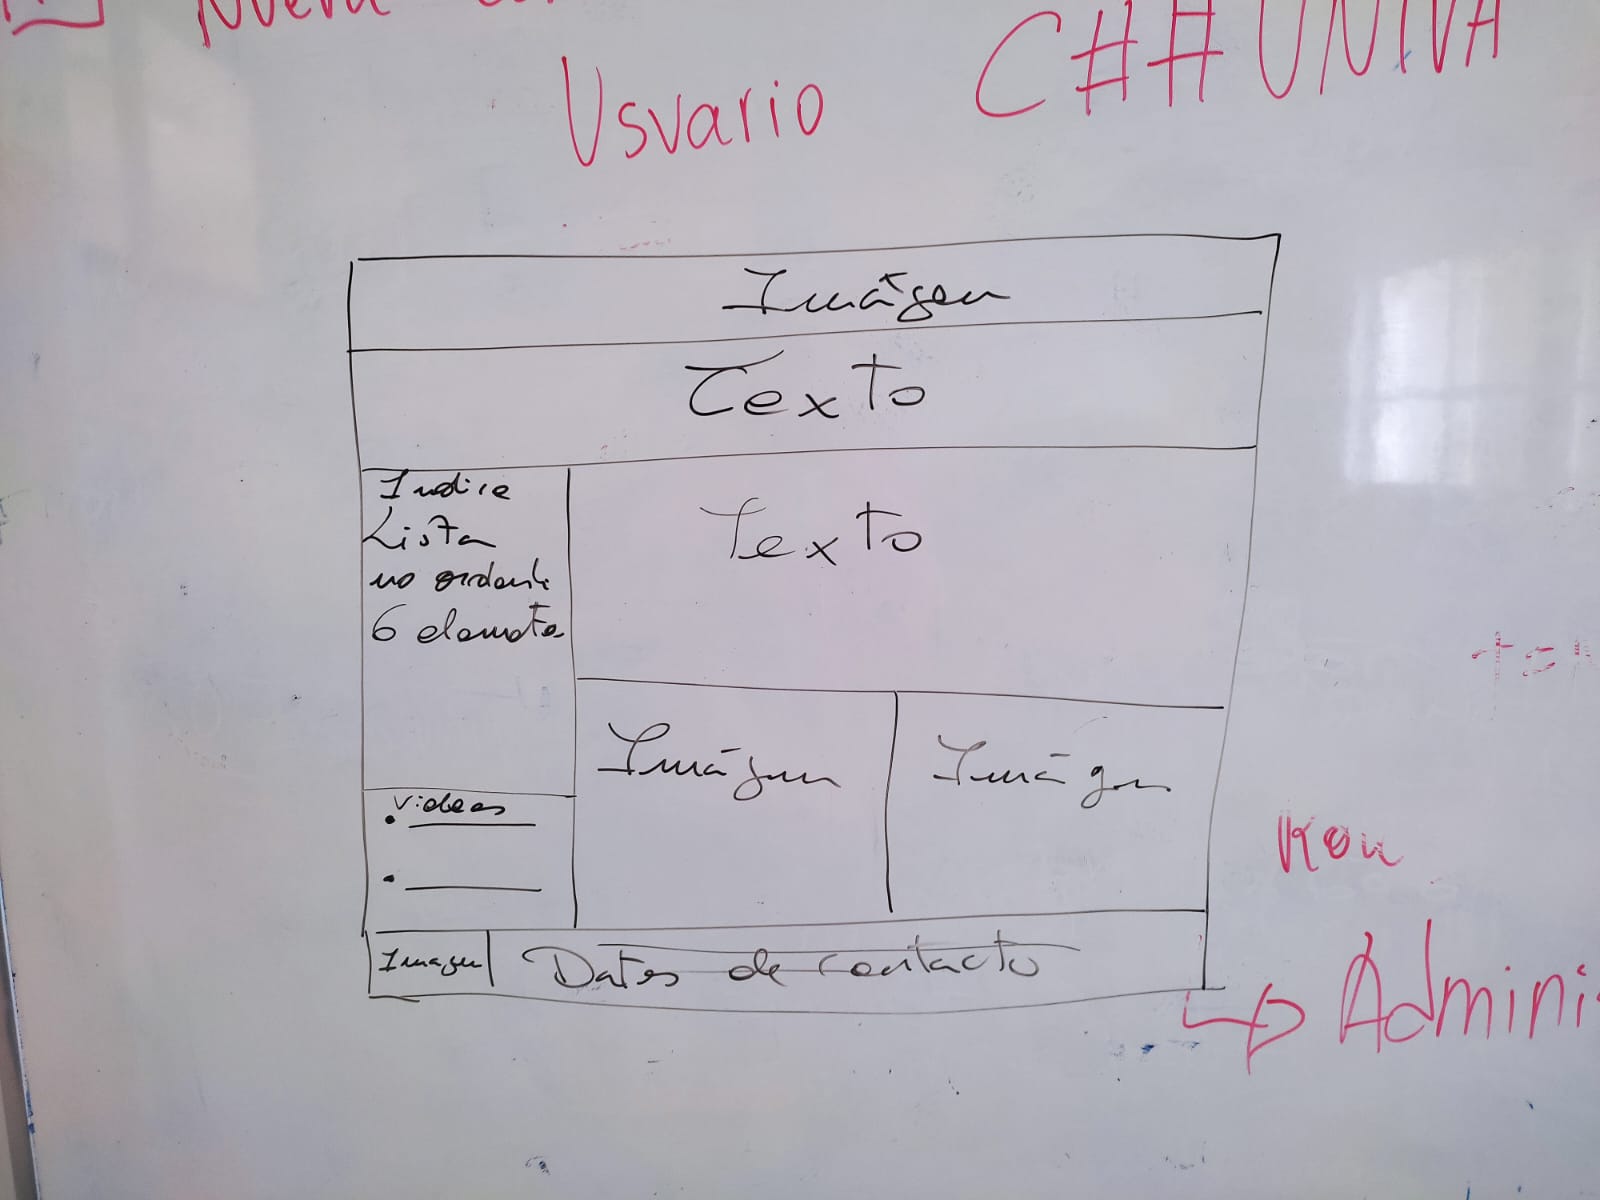 Nueva
Usuario
C##UNIVA
Imágen
Texto
Indice
Lista
no ordenada
6 elementos
Texto
Imágen
Imágen
Videos
Imagen
Datos de contacto
Adminis